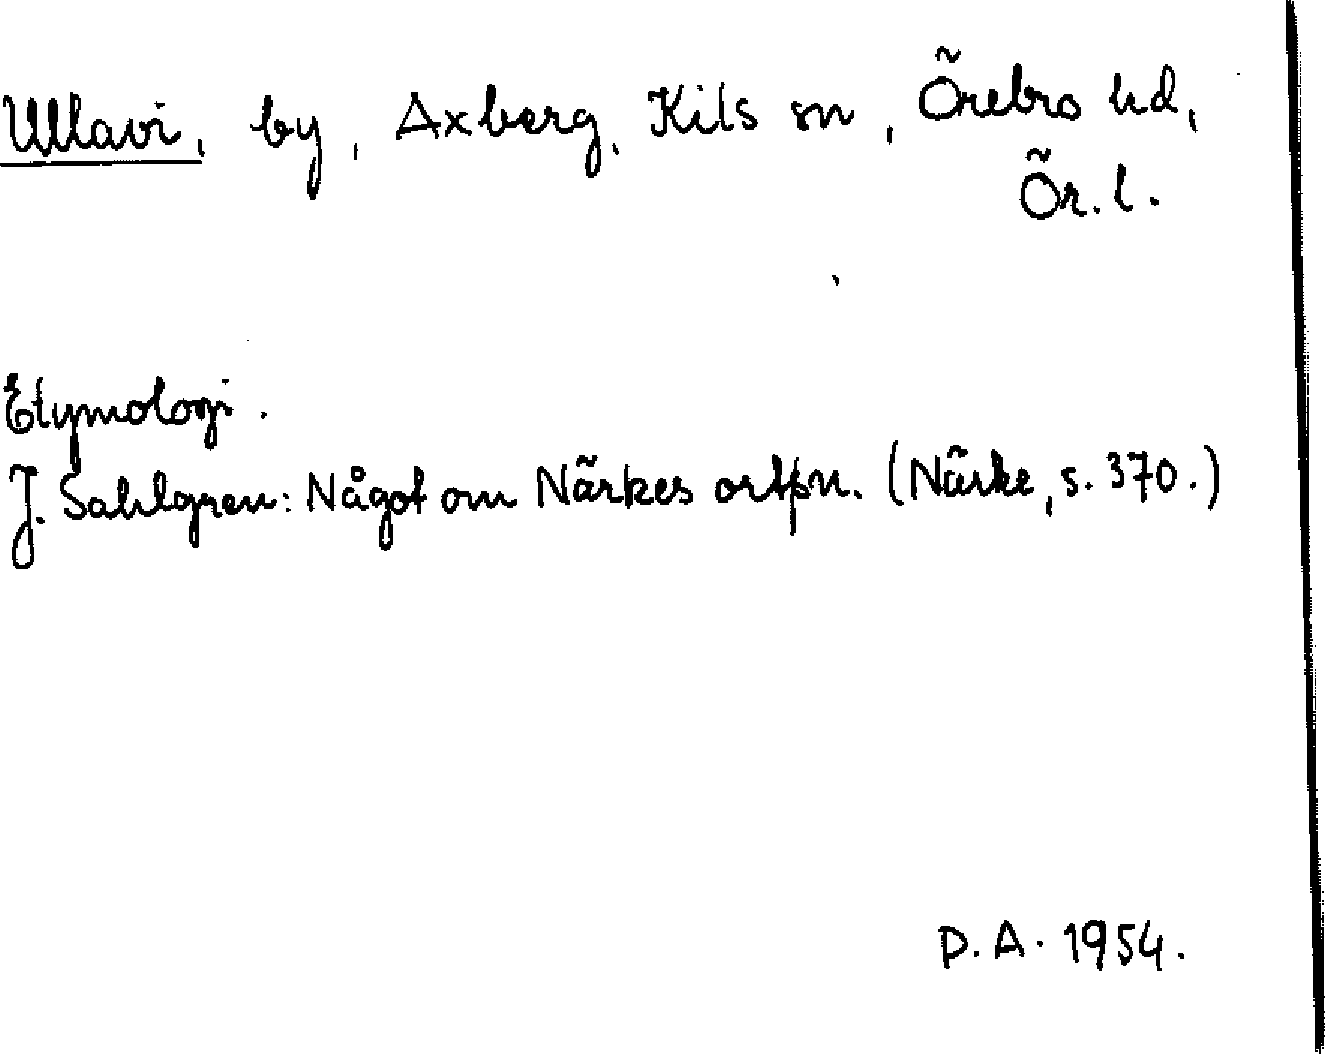 Ullavi, by, Axberg, Kils sn, Örebro hd,
Ör. l.
Etymologi.
J. Sahlgren: Något om Närkes ortpn. (Närke, s. 370.)
P. A. 1954.